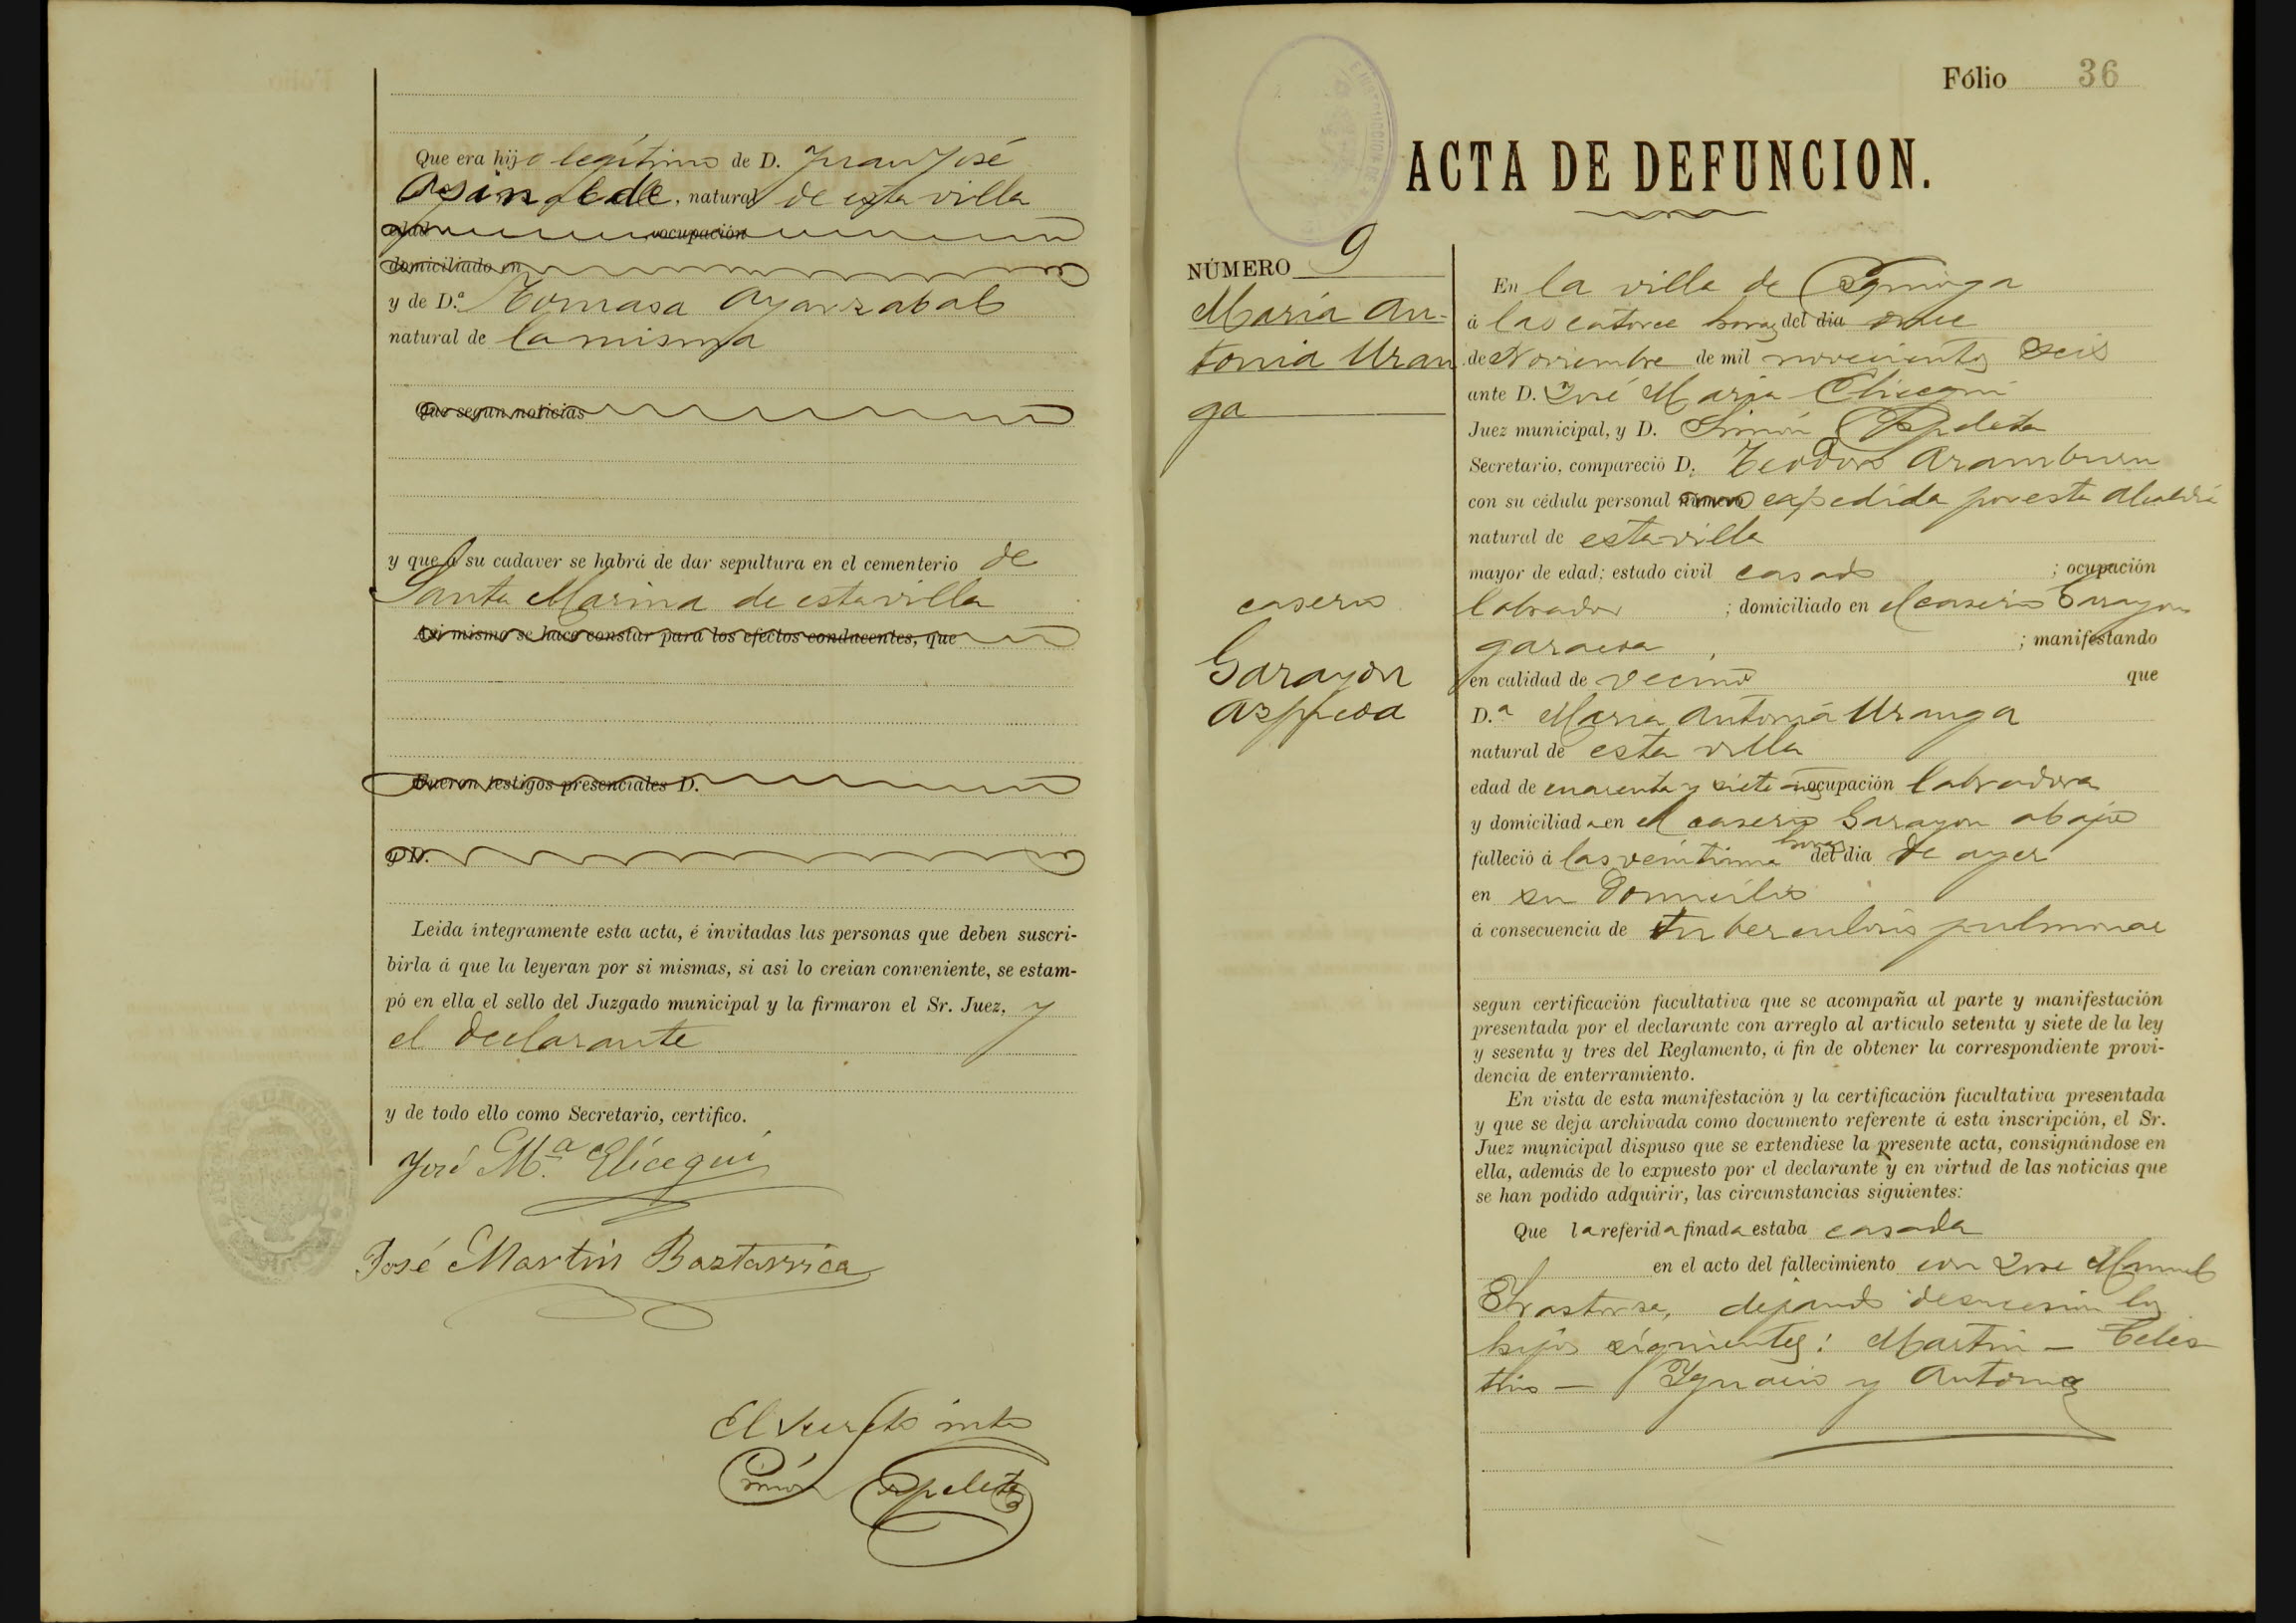 Que era hijo legítimo de D. Juan José
natural de esta villa
edad ocupación
domiciliado en
y de D.ª Tomasa Oyarzabal
natural de la misma
Que segun noticias
y que á su cadaver se habrá de dar sepultura en el cementerio de
Santa Marina de esta villa
Asi mismo se hace constar para los efectos conducentes, que
Fueron testigos presenciales D.
y D.
Leida íntegramente esta acta, é invitadas las personas que deben suscri-
birla á que la leyeran por si mismas, si asi lo creian conveniente, se estam-
pó en ella el sello del Juzgado municipal y la firmaron el Sr. Juez, y
el declarante
y de todo ello como Secretario, certifico.
José M.ª Elicegui
José Martin Bastarrica
El Secreto into
Simón Ezpeleta
Fólio 36
ACTA DE DEFUNCION.
NÚMERO 9
Maria An-
tonia Uran
ga
caserio
Garayon
azpicoa
En la villa de
á las catorce horas del dia once
de Noviembre de mil novecientos seis
ante D. José Maria Elicegui
Juez municipal, y D. Simón Ezpeleta
Secretario, compareció D. Teodoro Aramburu
con su cédula personal número expedida por esta Alcaldia
natural de esta villa
mayor de edad; estado civil casado ; ocupación
labrador ; domiciliado en el caserio Garayon
garaicoa ; manifestando
en calidad de vecino que
D.ª Maria Antonia Uranga
natural de esta villa
edad de cuarenta y siete años ocupación labradora
y domiciliada en el caserio Garayon abajo
falleció á las veintiuna horas del dia de ayer
en su domicilio
á consecuencia de tuberculosis pulmonar
segun certificación facultativa que se acompaña al parte y manifestación
presentada por el declarante con arreglo al artículo setenta y siete de la ley
y sesenta y tres del Reglamento, á fin de obtener la correspondiente provi-
dencia de enterramiento.
En vista de esta manifestación y la certificación facultativa presentada
y que se deja archivada como documento referente á esta inscripción, el Sr.
Juez municipal dispuso que se extendiese la presente acta, consignándose en
ella, además de lo expuesto por el declarante y en virtud de las noticias que
se han podido adquirir, las circunstancias siguientes:
Que la referida finada estaba casada
en el acto del fallecimiento con José Manuel
dejando de sucesión los
hijos siguientes: Martin – Celes
tino – Ygnacio y Antonia